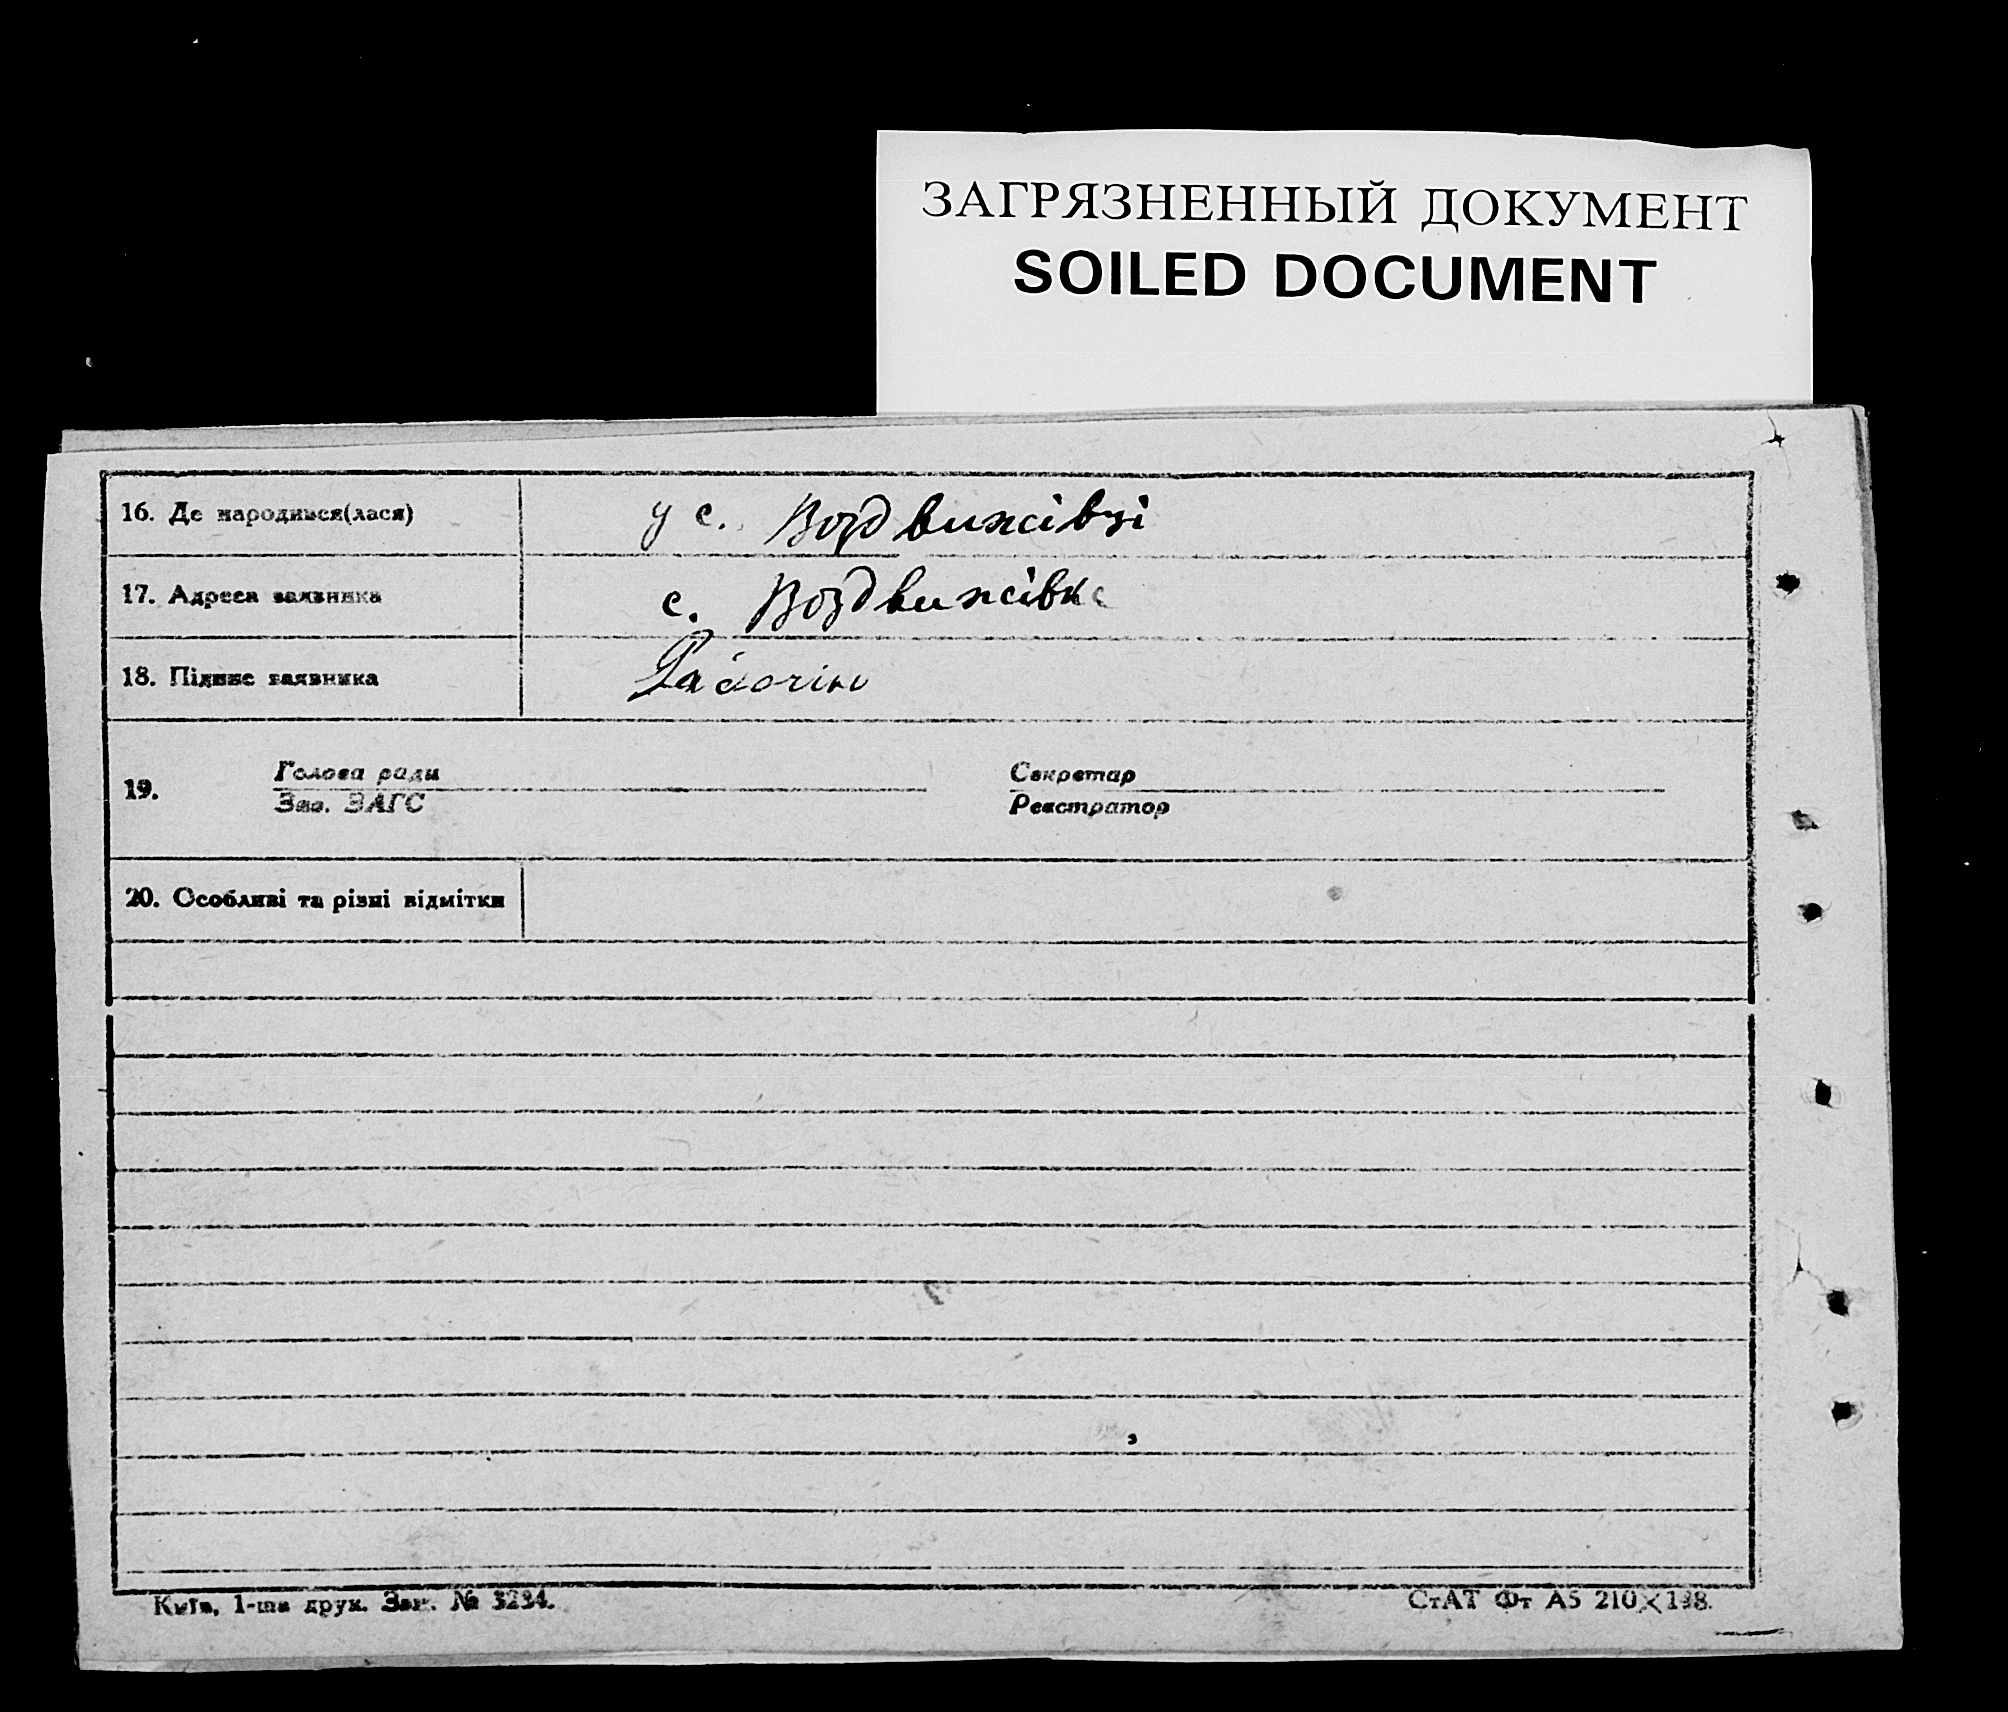 ЗАГРЯЗНЕННЫЙ ДОКУМЕНТ
SOILED DOCUMENT
16. Де народився(лася) у с. Воздвижівці
17. Адреса заявника с. Воздвижівка
18. Підпис заявника
19. Голова ради Секретар
Зав. ЗАГС Реєстратор
20. Особливі та різні відмітки
Київ, 1-ша друк. Зам. № 3234. СтАТ Фт А5 210×148.